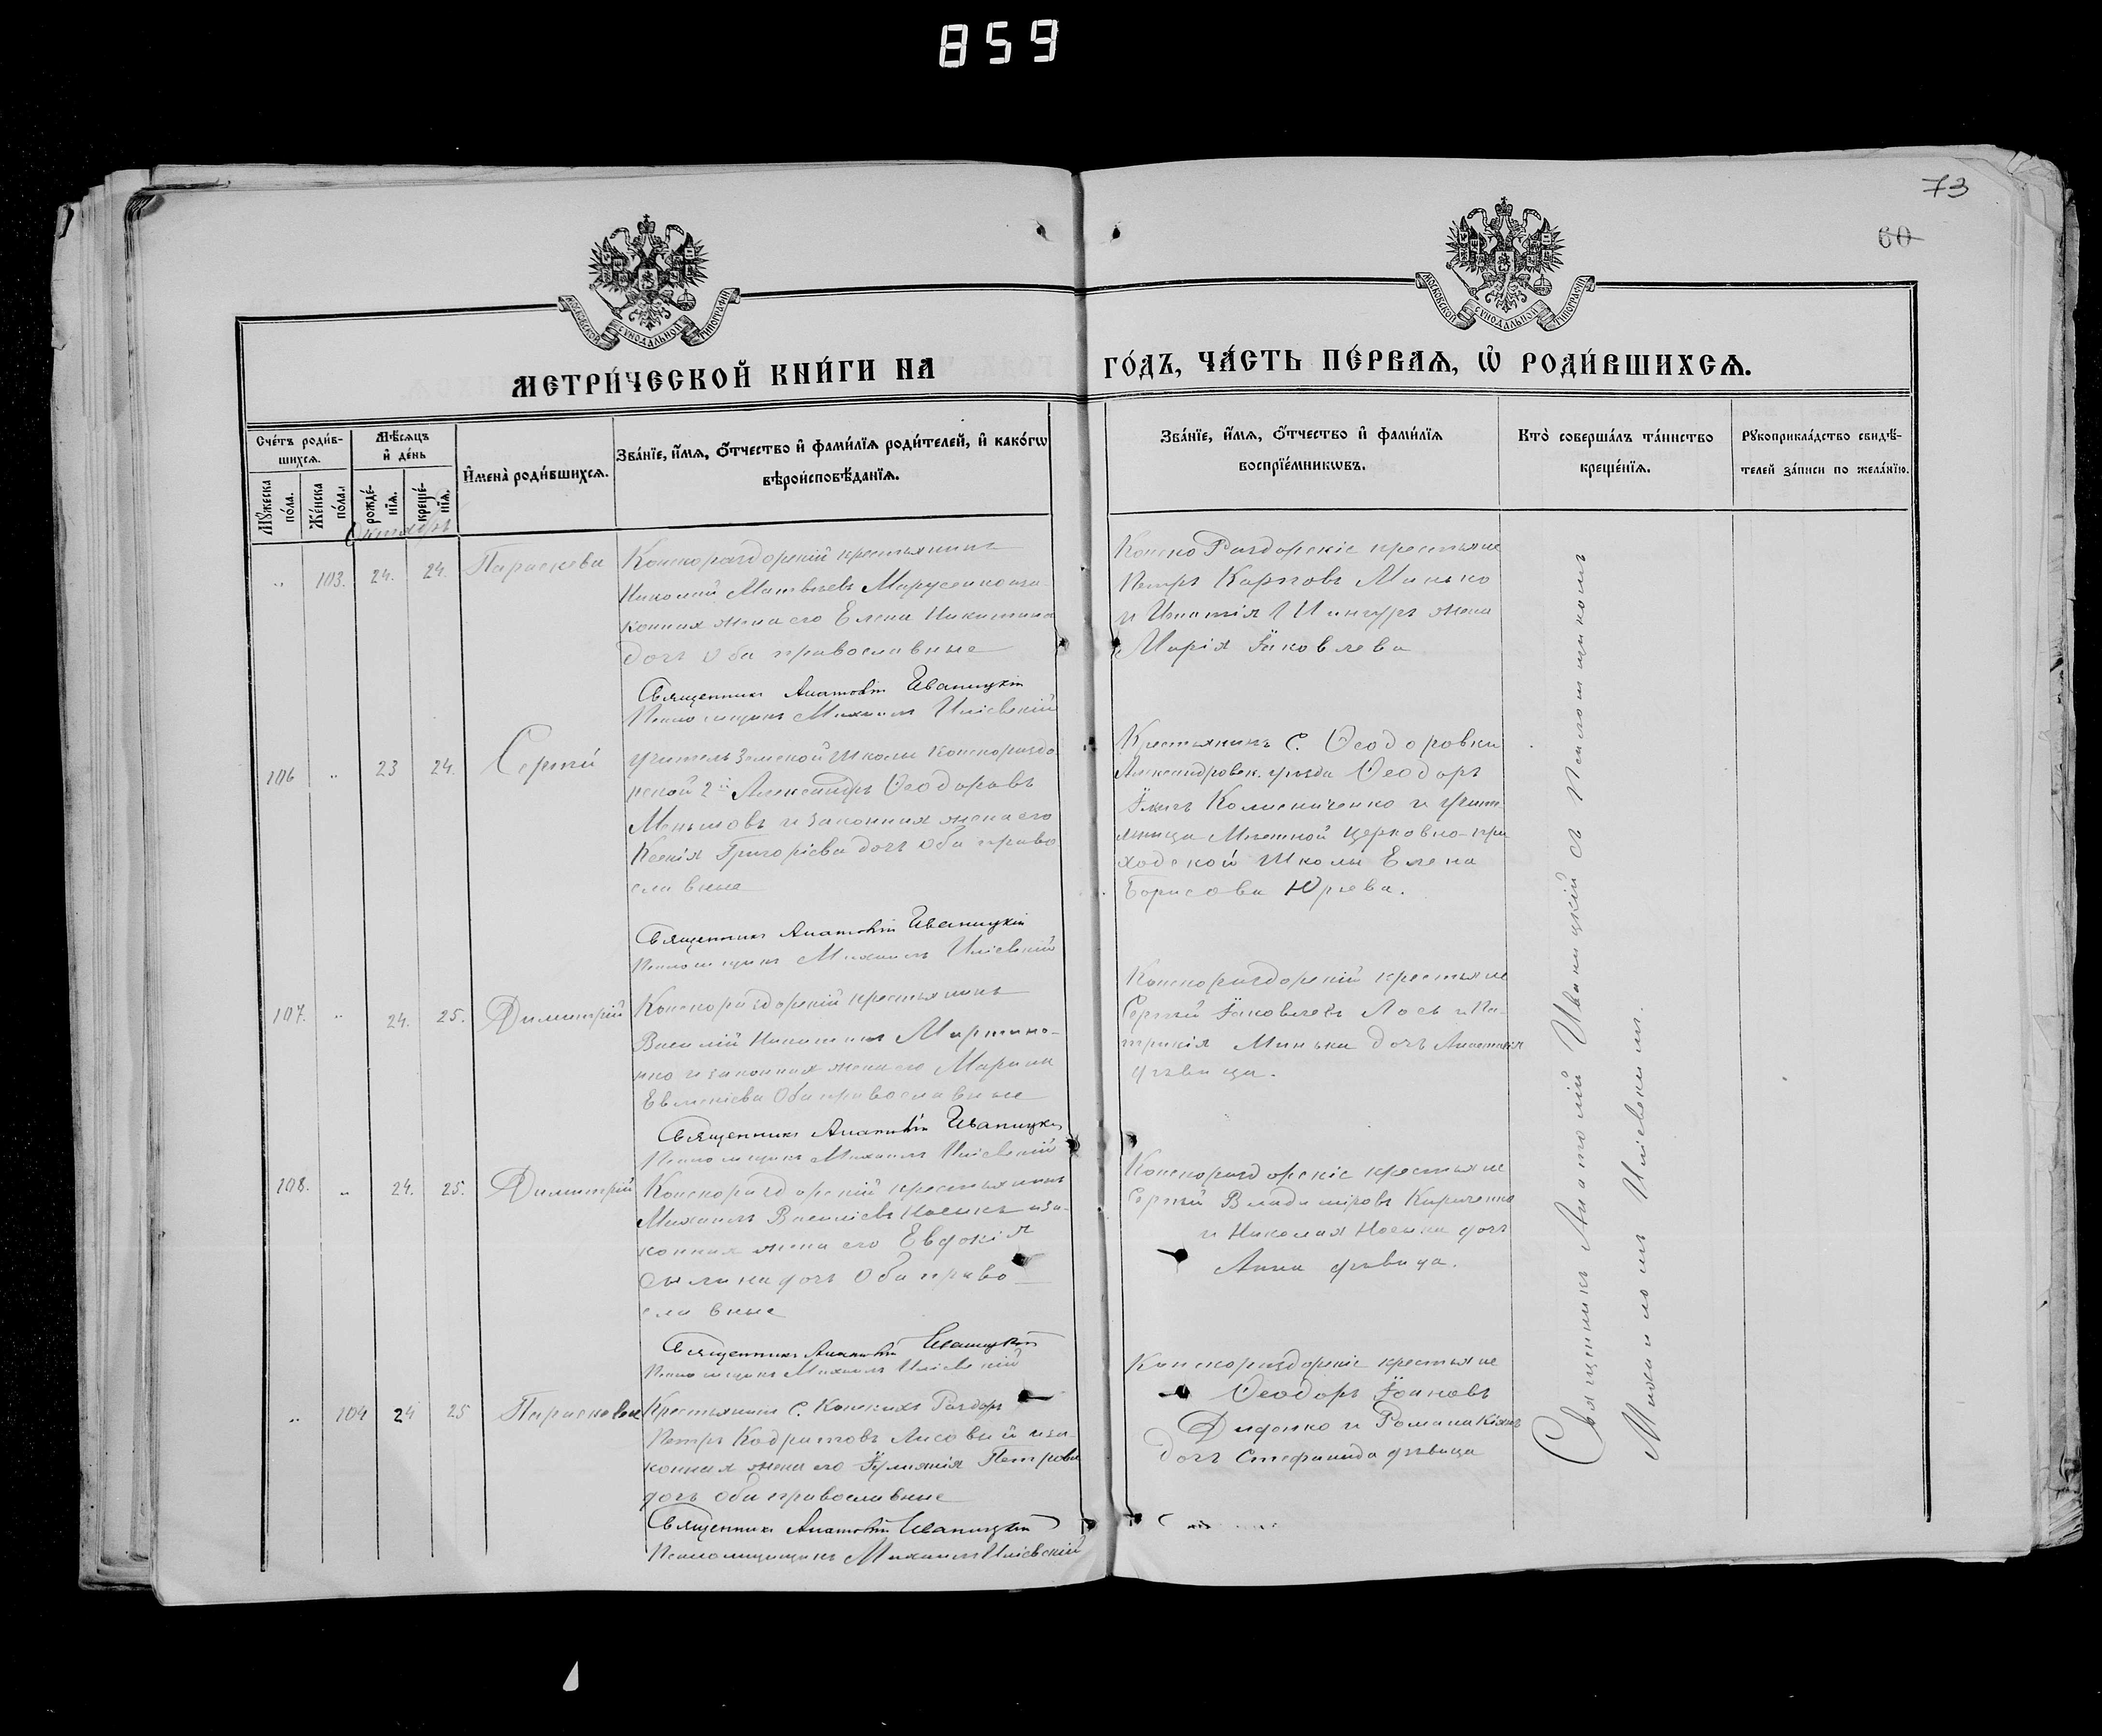 859
73
60
МОСКОВСКОЙ СѴНОДАЛЬНОЙ ТИПОГРАФІИ
МОСКОВСКОЙ СѴНОДАЛЬНОЙ ТИПОГРАФІИ
МЕТРИ́ЧЕСКОЙ КНИ́ГИ НА ГО́ДЪ, ЧА́СТЬ ПЕ́РВАѦ, Ѡ҆ РОДИ́ВШИХСѦ.
Сче́тъ роди́в-
шихсѧ.
Мѣ́сѧцъ
и҆ де́нь
Мꙋ́жеска по́ла.
Же́нска по́ла.
рожде́-
нїѧ.
креще́-
нїѧ.
И҆мена̀ роди́вшихсѧ.
Зва́нїе, и҆́мѧ, ѻ҆́тчество и҆ фами́лїѧ роди́телей, и҆ како́гѡ
вѣроисповѣ́данїѧ.
Зва́нїе, и҆́мѧ, ѻ҆́тчество и҆ фами́лїѧ
воспрїе́мникѡвъ.
Кто̀ соверша́лъ та́инство
креще́нїѧ.
Рꙋкоприкла́дство свидѣ́-
телей за́писи по жела́нїю.
Октябрь
" 103. 24. 24. Параскева
Конскораздорскій крестьянинъ
Николай Матвѣевъ Марусенко и за-
конная жена его Елена Никитина
дочь оба православные
Священникъ Анатолій Иваницкій
Псаломщикъ Михаилъ Илiевскій
Конско Раздорскіе крестьяне
Петръ Карповъ Минько
и Игнатія Шингуръ жена
Марія Іаковлева
106 " 23 24. Сергѣй
учитель земской школы Конскораздо
рской 2й Александръ Ѳеодоровъ
Меньшовъ и законная жена его
Ксенія Григоріева дочь оба право
славные
Священникъ Анатолій Иваницкій
Псаломщикъ Михаилъ Илiевскій
Крестьянинъ С. Ѳеодоровки
Александровск. уѣзда Ѳеодоръ
Коломиченко и учите
льница Мѣстной церковно-при
ходской школы Елена
Борисова Юрьева.
107. " 24. 25. Димитрій
Конскораздорскій крестьянинъ
Василій Никитинъ Мартыне-
нко и законная жена его Марина
Евменіева оба православные
Священникъ Анатолій Иваницкій
Псаломщикъ Михаилъ Илiевскій
Конскораздорскій крестьяне
Сергѣй Іаковлевъ Лось и Па-
трикія Минька дочь Анастасія
дѣвица.
108. " 24. 25. Димитрій
Конскораздорскій крестьянинъ
Михаилъ Василіевъ Носикъ и за-
конная жена его Евдокія
дочь оба право-
славные
Священникъ Анатолій Иваницкій
Псаломщикъ Михаилъ Илiевскій
Конскораздорскіе крестьяне
Сергѣй Владиміровъ Кириченко
и Николая Носика дочь
Анна дѣвица.
" 104 24 25 Параскева
Крестьянинъ С. Конскихъ Раздоръ
Петръ Кодратовъ Лисовый и за-
конная жена его Іуліанія Петрова
дочь оба православные
Священникъ Анатолій Иваницкій
Псаломщикъ Михаилъ Илiевскій
Конскораздорскіе крестьяне
Ѳеодоръ Іоановъ
Диденко и Романа
дочь Стефанида дѣвица
Священникъ Анатолій Иваницкій съ Псаломщикомъ
Михаиломъ Илiевскимъ.